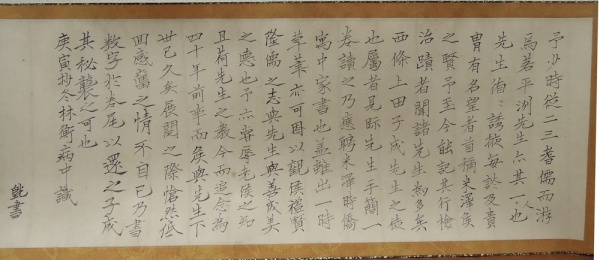 予少時從二三耆儒而游
焉若平洌先生亦其一也
先生循〻誘掖每談及貴
胄有名望者首稱米澤矦
之賢予至今能記其行檢
治蹟者聞諸先生為多矣
西條上田子成先生之
也屬者見眎先生手簡一
卷讀之乃應聘米澤時僑
寓中家書也蓋雖出一時
草〻亦可因以觀矦禮賢
隆儒之志與先生與善成美
之也予六辱矦之知
且荷先生之教今而追念為
四十年前事而矦與先生下
世已久矣展閱之際愴然低
囘感舊之情不自已乃書
數字於卷尾以還之子成
其秘襲之可也
庚寅抄冬林衡病中識
書